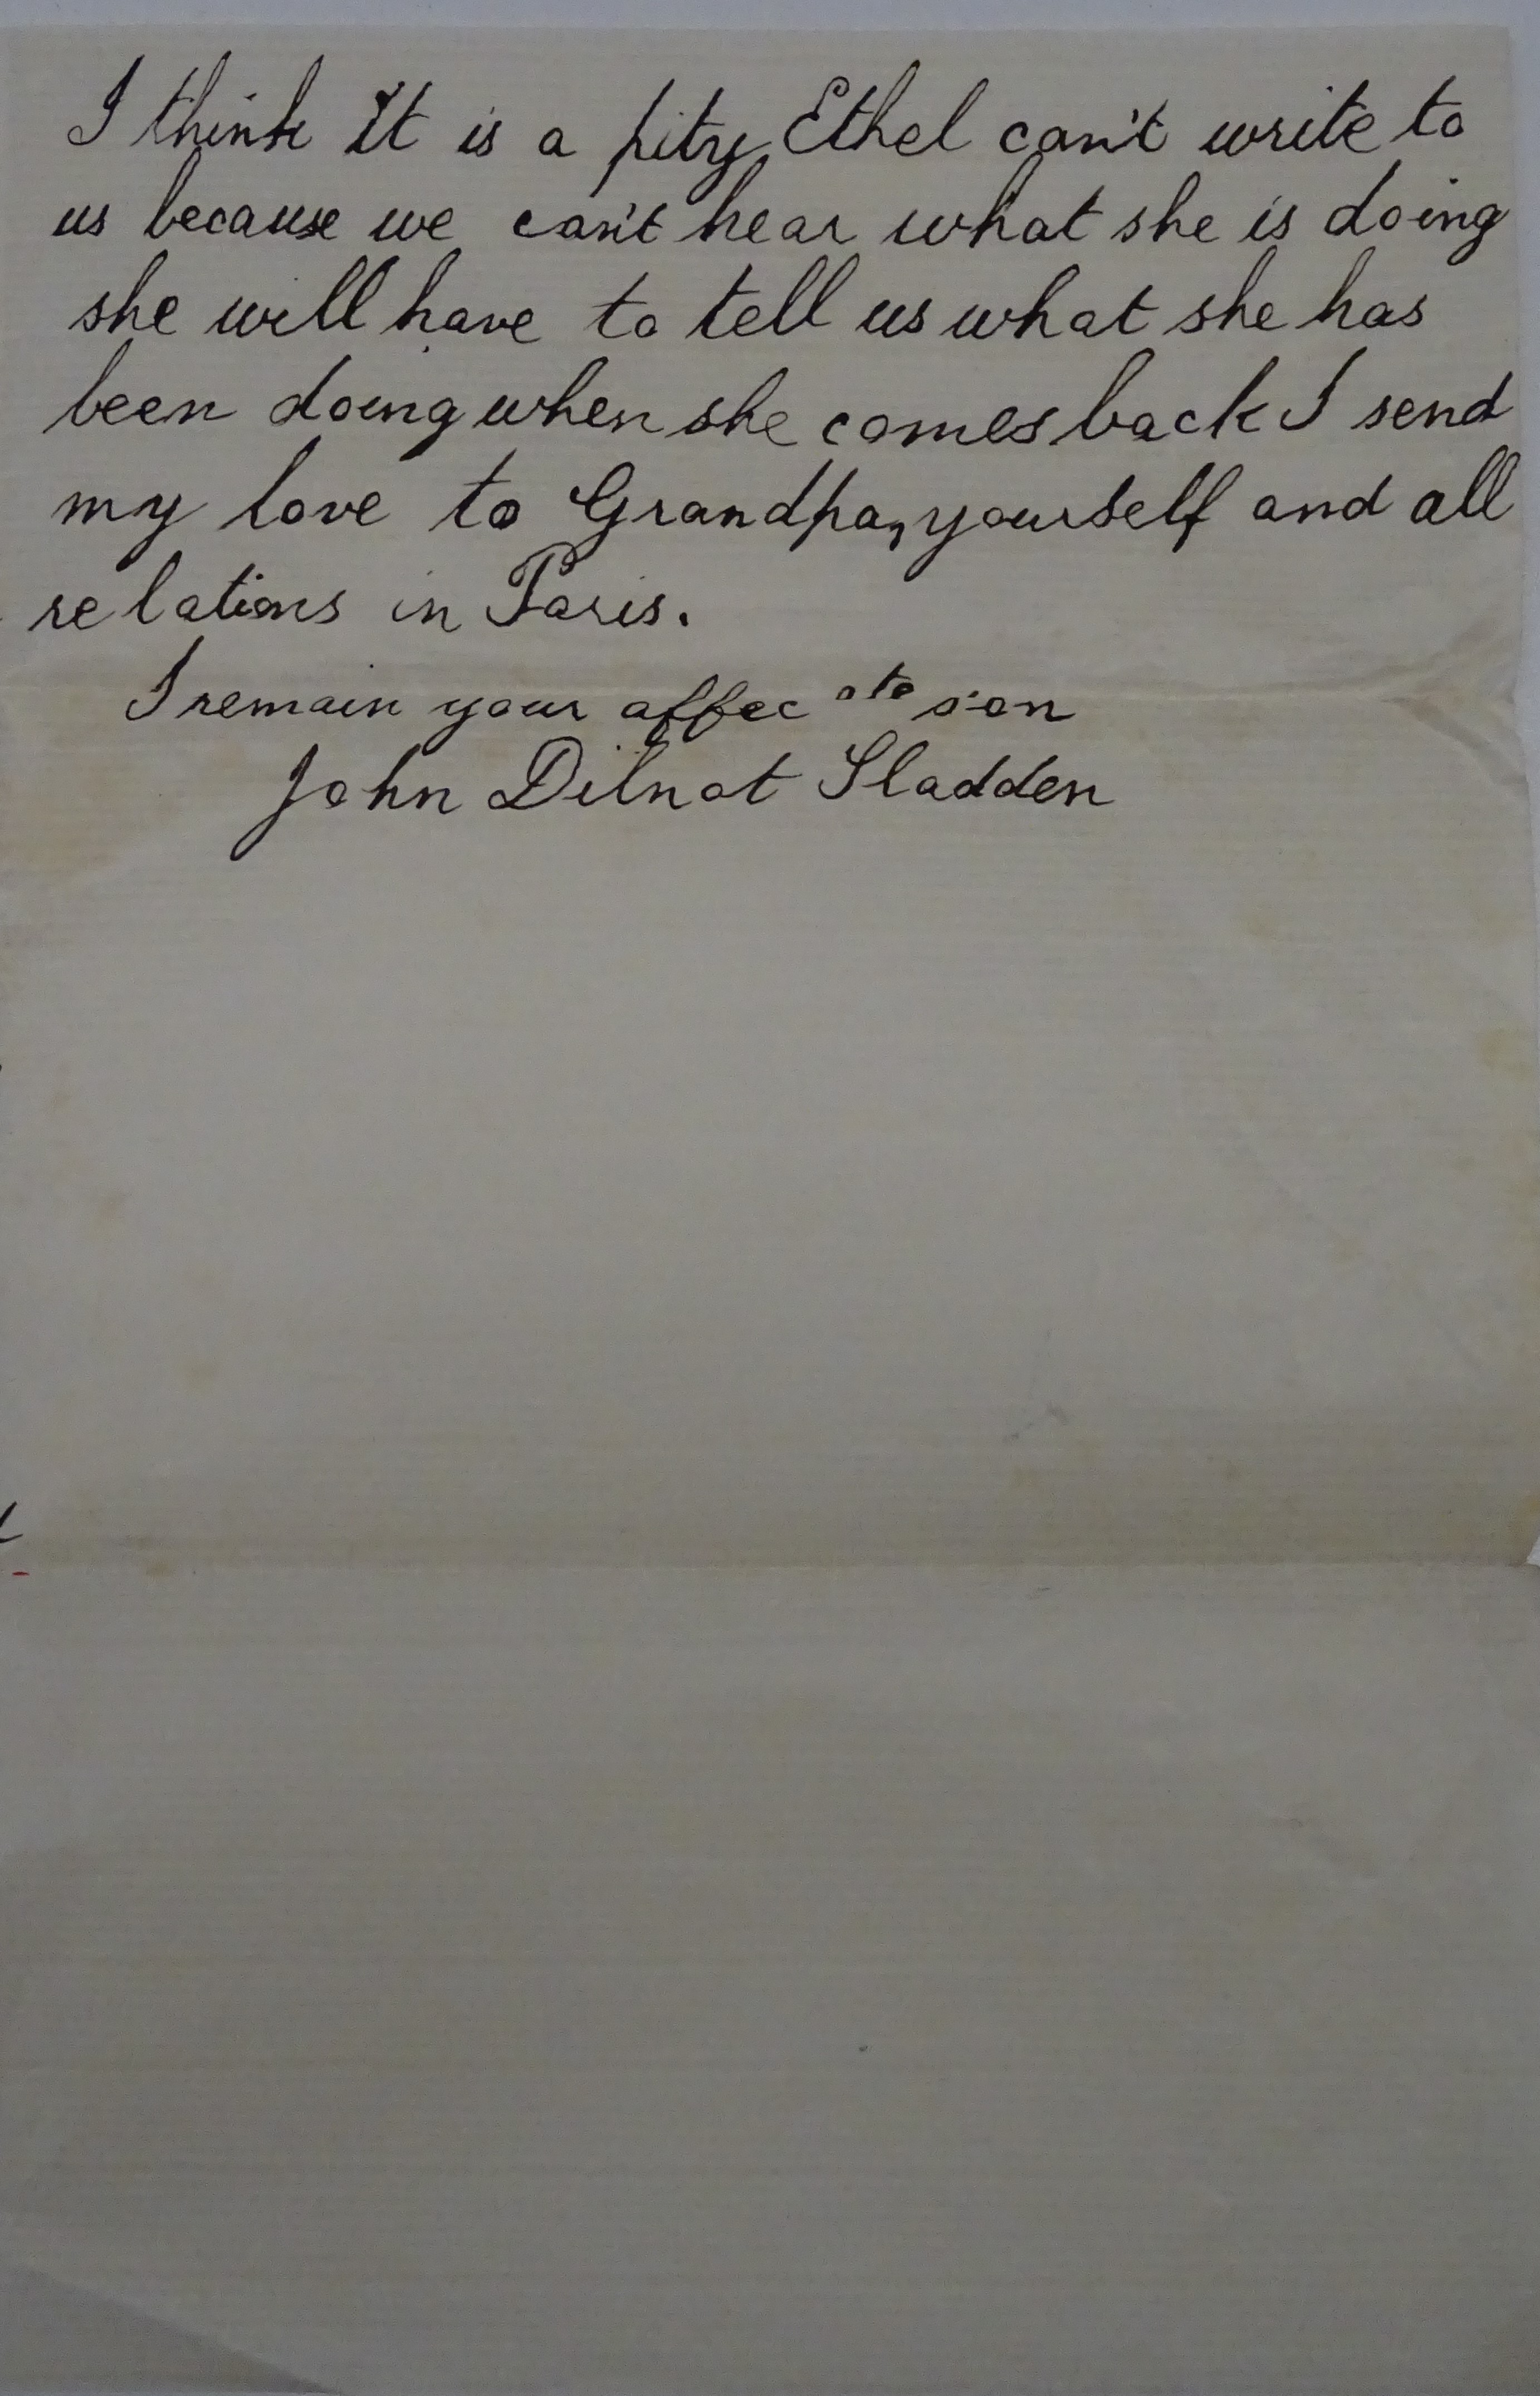 I think it is a pity Ethel can't write to
us because we can't hear what she is doing
she will have to tell us what she has
been doing when she comes back I send
my love to Grandpa, yourself and all
relations in Paris.
I remain your affec ate son
John Dilnot Sladden